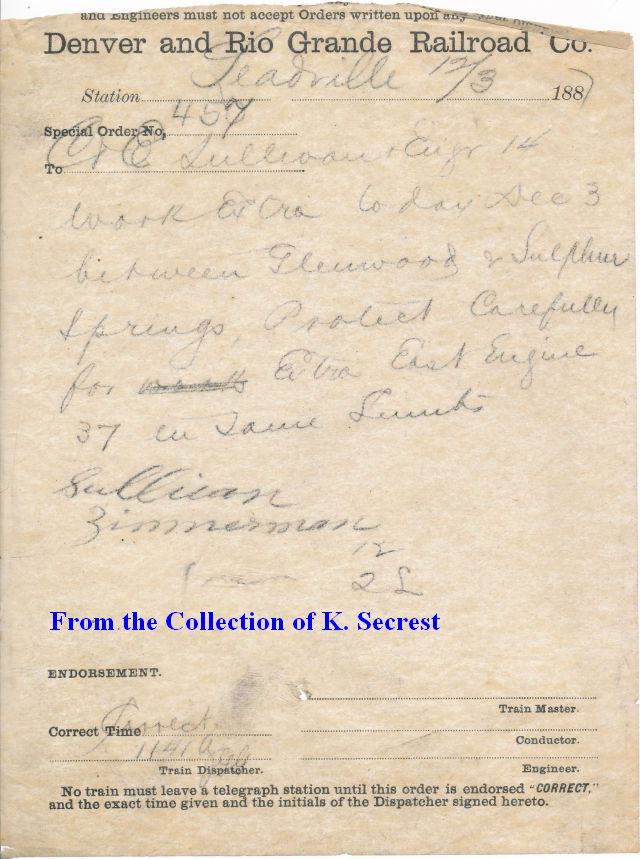 and Engineers must not accept Orders written upon any
Denver and Rio Grande Railroad Co.
Station Leadville 12/3 1887
Special Order No, 457
To C&E Sullivan & Engr 14
Work Extra to day Dec 3
between Glenwood & Sulphur
Springs, Protect Carefully
for Extra East Engine
37 in Same Limits
Sullivan
Zimmerman
12
2
From the Collection of K. Secrest
ENDORSEMENT.
Train Master.
Correct Time Correct
Conductor.
1141 a
Train Dispatcher.
Engineer.
No train must leave a telegraph station until this order is endorsed "CORRECT,"
and the exact time given and the initials of the Dispatcher signed hereto.